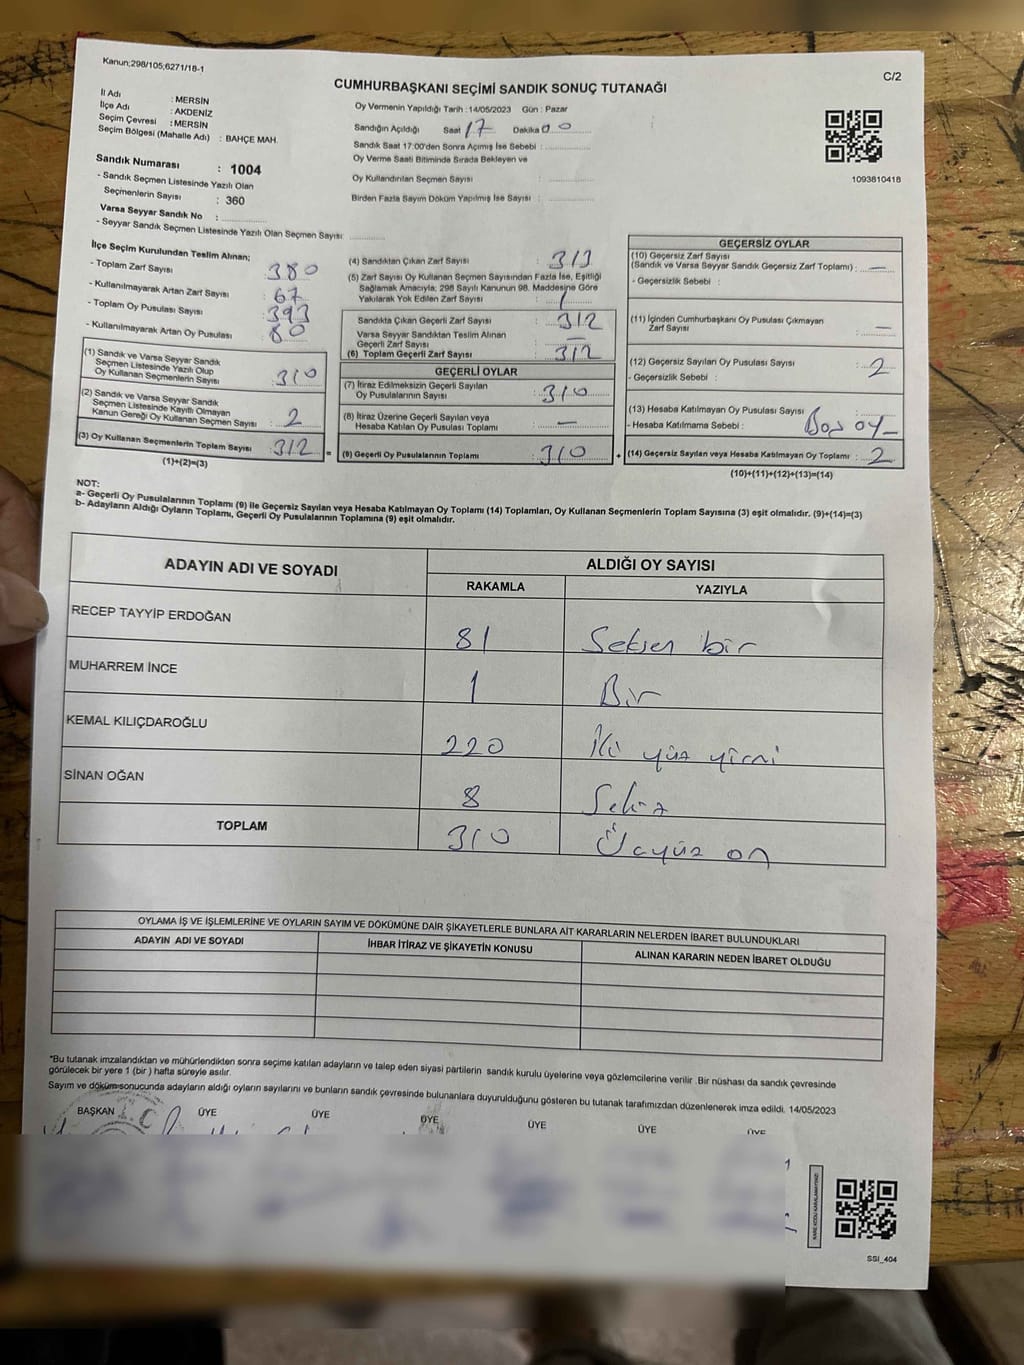 Kanun;298/105;6271/18-1
C/2
CUMHURBAŞKANI SEÇİMİ SANDIK SONUÇ TUTANAĞI
İl Adı : MERSİN
İlçe Adı : AKDENİZ
Seçim Çevresi : MERSİN
Seçim Bölgesi (Mahalle Adı) : BAHÇE MAH.
Oy Vermenin Yapıldığı Tarih : 14/05/2023 Gün : Pazar
Sandığın Açıldığı Saat 17 Dakika 00
Sandık Saat 17:00'den Sonra Açımış İse Sebebi :
Oy Verme Saati Bitiminde Sırada Bekleyen ve
Oy Kullandırılan Seçmen Sayısı :
Birden Fazla Sayım Döküm Yapılmış İse Sayısı :
1093810418
Sandık Numarası : 1004
- Sandık Seçmen Listesinde Yazılı Olan
Seçmenlerin Sayısı : 360
Varsa Seyyar Sandık No :
- Seyyar Sandık Seçmen Listesinde Yazılı Olan Seçmen Sayısı:
İlçe Seçim Kurulundan Teslim Alınan;
- Toplam Zarf Sayısı : 380
- Kullanılmayarak Artan Zarf Sayısı : 67
- Toplam Oy Pusulası Sayısı : 393
- Kullanılmayarak Artan Oy Pusulası : 80
(1) Sandık ve Varsa Seyyar Sandık
Seçmen Listesinde Yazılı Olup
Oy Kullanan Seçmenlerin Sayısı : 310
(2) Sandık ve Varsa Seyyar Sandık
Seçmen Listesinde Kayıtlı Olmayan
Kanun Gereği Oy Kullanan Seçmen Sayısı : 2
(3) Oy Kullanan Seçmenlerin Toplam Sayısı : 312 =
(1)+(2)=(3)
(4) Sandıktan Çıkan Zarf Sayısı : 313
(5) Zarf Sayısı Oy Kullanan Seçmen Sayısından Fazla İse, Eşitliği
Sağlamak Amacıyla; 298 Sayılı Kanunun 98. Maddesine Göre
Yakılarak Yok Edilen Zarf Sayısı : 1
Sandıkta Çıkan Geçerli Zarf Sayısı : 312
Varsa Seyyar Sandıktan Teslim Alınan
Geçerli Zarf Sayısı : —
(6) Toplam Geçerli Zarf Sayısı : 312
GEÇERLİ OYLAR
(7) İtiraz Edilmeksizin Geçerli Sayılan
Oy Pusulalarının Sayısı : 310
(8) İtiraz Üzerine Geçerli Sayılan veya
Hesaba Katılan Oy Pusulası Toplamı : —
(9) Geçerli Oy Pusulalarının Toplamı : 310 +
GEÇERSİZ OYLAR
(10) Geçersiz Zarf Sayısı
(Sandık ve Varsa Seyyar Sandık Geçersiz Zarf Toplamı) : —
- Geçersizlik Sebebi :
(11) İçinden Cumhurbaşkanı Oy Pusulası Çıkmayan
Zarf Sayısı : —
(12) Geçersiz Sayılan Oy Pusulası Sayısı : 2
- Geçersizlik Sebebi :
(13) Hesaba Katılmayan Oy Pusulası Sayısı :
- Hesaba Katılmama Sebebi : Boş oy
(14) Geçersiz Sayılan veya Hesaba Katılmayan Oy Toplamı : 2
(10)+(11)+(12)+(13)=(14)
NOT:
a- Geçerli Oy Pusulalarının Toplamı (9) ile Geçersiz Sayılan veya Hesaba Katılmayan Oy Toplamı (14) Toplamları, Oy Kullanan Seçmenlerin Toplam Sayısına (3) eşit olmalıdır. (9)+(14)=(3)
b- Adayların Aldığı Oyların Toplamı, Geçerli Oy Pusulalarının Toplamına (9) eşit olmalıdır.
ADAYIN ADI VE SOYADI
ALDIĞI OY SAYISI
RAKAMLA YAZIYLA
RECEP TAYYİP ERDOĞAN 81 Seksen bir
MUHARREM İNCE 1 Bir
KEMAL KILIÇDAROĞLU 220 İki yüz yirmi
SİNAN OĞAN 8 Sekiz
TOPLAM 310 Üçyüz on
OYLAMA İŞ VE İŞLEMLERİNE VE OYLARIN SAYIM VE DÖKÜMÜNE DAİR ŞİKAYETLERLE BUNLARA AİT KARARLARIN NELERDEN İBARET BULUNDUKLARI
ADAYIN ADI VE SOYADI İHBAR İTİRAZ VE ŞİKAYETİN KONUSU ALINAN KARARIN NEDEN İBARET OLDUĞU
*Bu tutanak imzalandıktan ve mühürlendikten sonra seçime katılan adayların ve talep eden siyasi partilerin sandık kurulu üyelerine veya gözlemcilerine verilir .Bir nüshası da sandık çevresinde
görülecek bir yere 1 (bir ) hafta süreyle asılır.
Sayım ve döküm sonucunda adayların aldığı oyların sayılarını ve bunların sandık çevresinde bulunanlara duyurulduğunu gösteren bu tutanak tarafımızdan düzenlenerek imza edildi. 14/05/2023
BAŞKAN ÜYE ÜYE ÜYE ÜYE ÜYE ÜYE
SSI_404